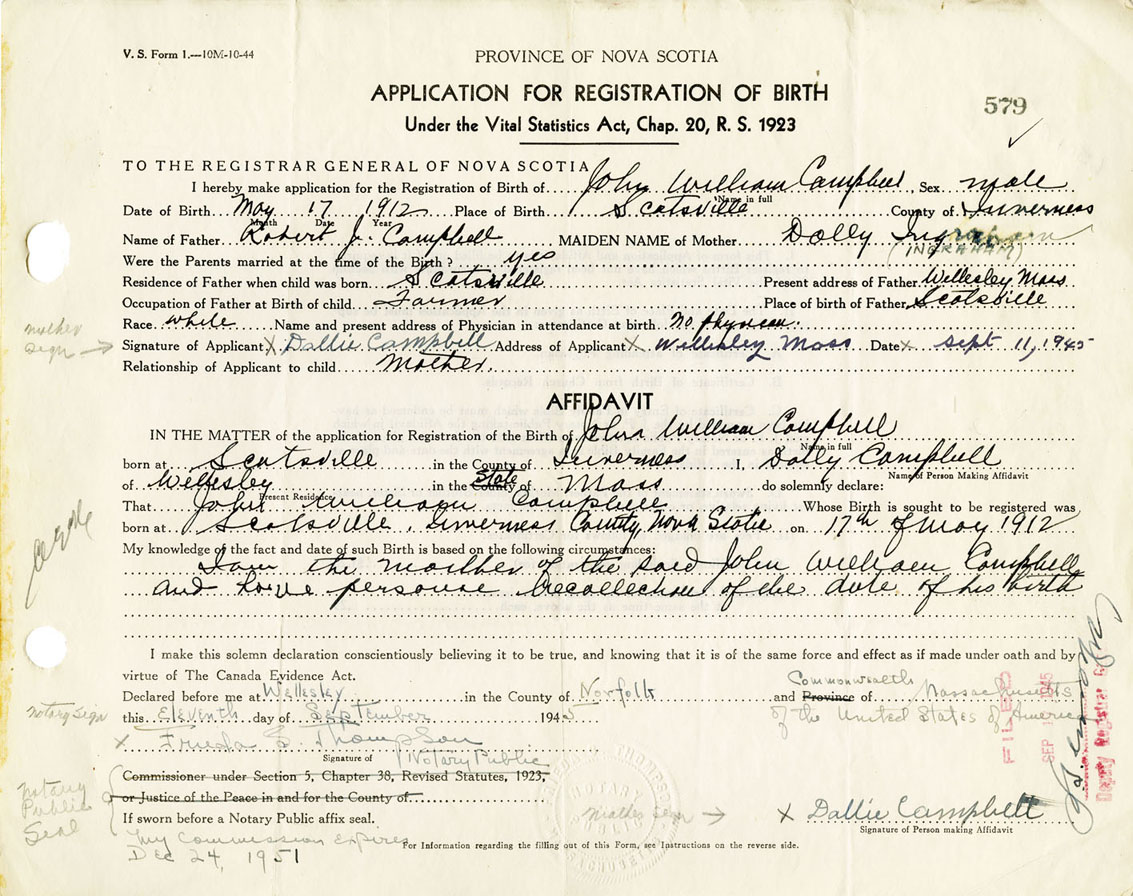 V. S. Form 1.—10M-10-44
PROVINCE OF NOVA SCOTIA
APPLICATION FOR REGISTRATION OF BIRTH
579
Under the Vital Statistics Act, Chap. 20, R. S. 1923
TO THE REGISTRAR GENERAL OF NOVA SCOTIA
I hereby make application for the Registration of Birth of John William Campbell, Sex male
Name in full
Date of Birth May 17 1912 Place of Birth Scotsville County of Inverness
Month Date Year
Name of Father Robert J. Campbell MAIDEN NAME of Mother Dolly Ingraham
(INGRAHAM)
Were the Parents married at the time of the Birth? yes
Residence of Father when child was born Scotsville Present address of Father Wellesley Mass
Occupation of Father at Birth of child Farmer Place of birth of Father Scotsville
Race white Name and present address of Physician in attendance at birth no physician.
mother sign → Signature of Applicant X Dallie Campbell Address of Applicant X Wellesley Mass Date X Sept 11, 1945
Relationship of Applicant to child Mother.
AFFIDAVIT
IN THE MATTER of the application for Registration of the Birth of John William Campbell
Name in full
born at Scotsville in the County of Inverness I, Dolly Campbell
Name of Person Making Affidavit
of Wellesley in the County State of Mass do solemnly declare:
Present Residence
That John William Campbell Whose Birth is sought to be registered was
born at Scotsville, Inverness County, Nova Scotia on 17th of May 1912
My knowledge of the fact and date of such Birth is based on the following circumstances:
I am the mother of the said John William Campbell
and have personal recollection of the date of his birth
I make this solemn declaration conscientiously believing it to be true, and knowing that it is of the same force and effect as if made under oath and by
virtue of The Canada Evidence Act.
Declared before me at Wellesley in the County of Norfolk and Province Commonwealth of Massachusetts
notary sign this Eleventh day of September 1945 of the United States of America
X Frieda S. Thompson
Signature of Notary Public
Commissioner under Section 5, Chapter 38, Revised Statutes, 1923,
or Justice of the Peace in and for the County of
If sworn before a Notary Public affix seal.
notary Public Seal
My Commission Expires
Dec 24, 1951
mother sign → X Dallie Campbell
Signature of Person making Affidavit
For Information regarding the filling out of this Form, see Instructions on the reverse side.
FILED
SEP 1945
Deputy Registrar